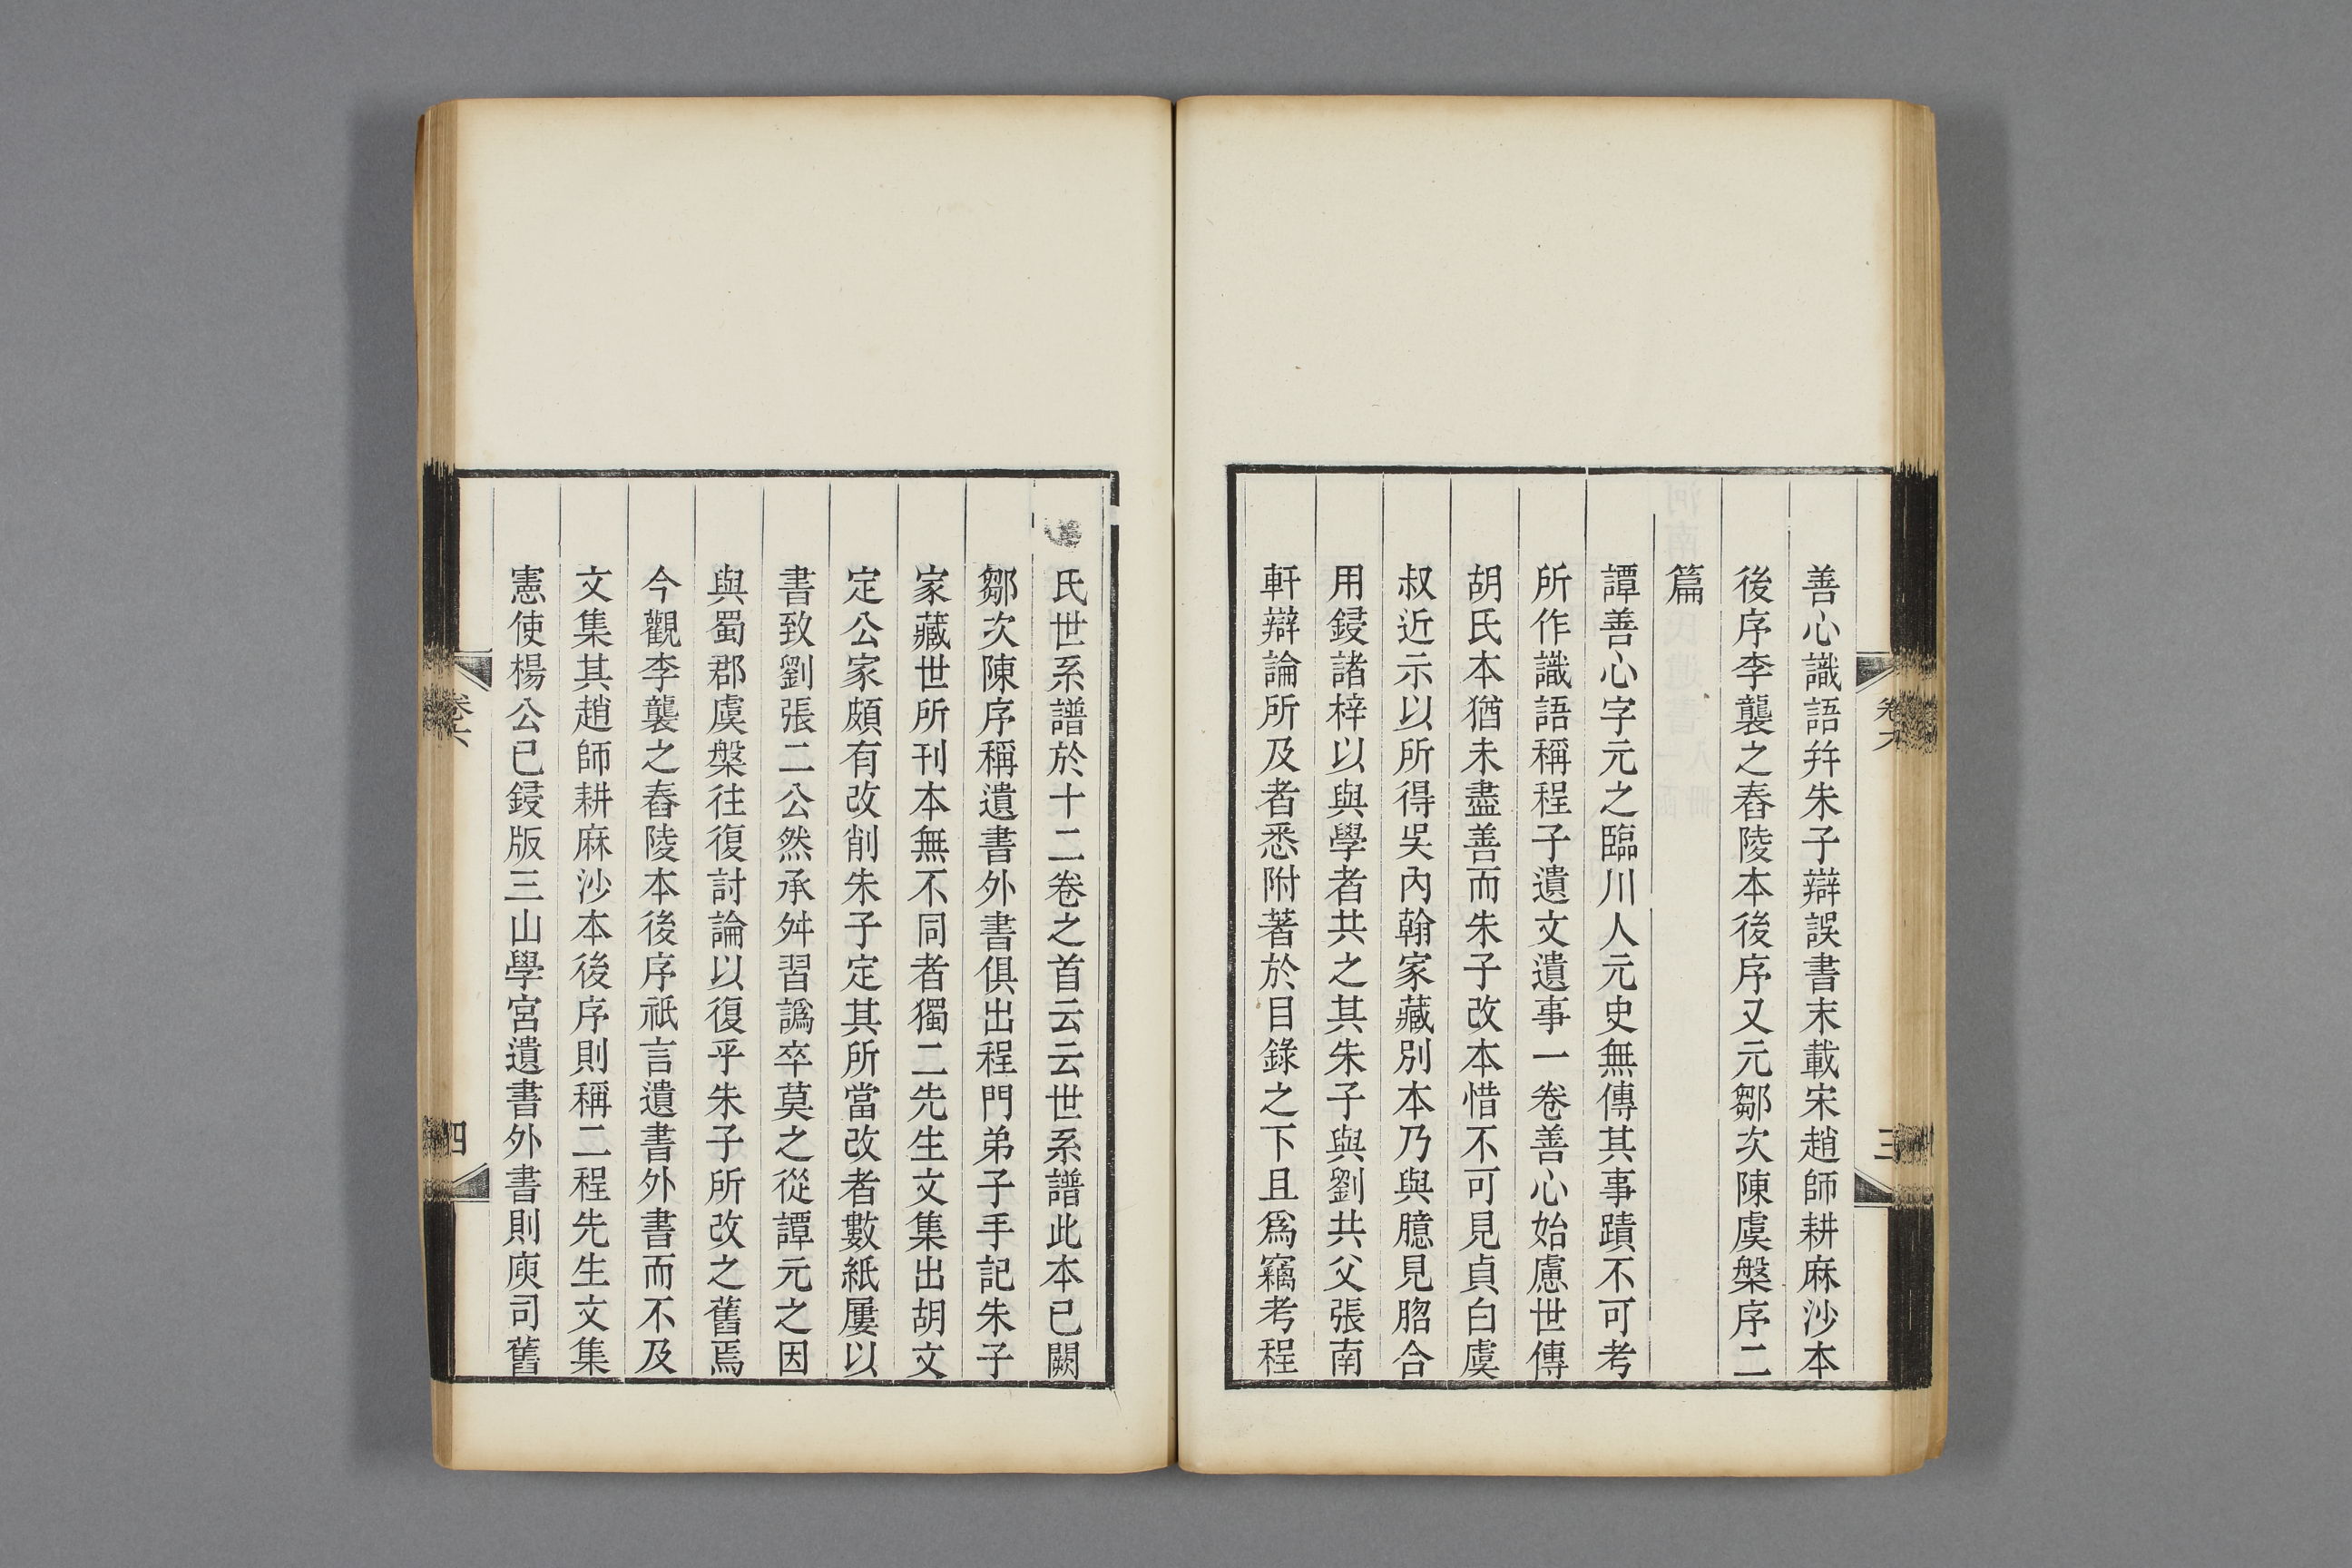 善心識語幷朱子辯誤書末載宋趙師耕麻沙本
後序李襲之舂陵本後序又元鄒次陳虞槃序二
篇
譚善心字元之臨川人元史無傳其事蹟不可考
所作識語稱程子遺文遺事一卷善心始慮世傳
胡氏本猶未盡善而朱子改本惜不可見貞白虞
叔近示以所得吳內翰家藏別本乃與臆見脗合
用鋟諸梓以與學者共之其朱子與劉共父張南
軒辯論所及者悉附著於目錄之下且爲竊考程
氏世系譜於十二卷之首云云世系譜此本已闕
鄒次陳序稱遺書外書俱出程門弟子手記朱子
家藏世所刊本無不同者獨二先生文集出胡文
定公家頗有改削朱子定其所當改者數紙屢以
書致劉張二公然承舛習譌卒莫之從譚元之因
與蜀郡虞槃往復討論以復乎朱子所改之舊焉
今觀李襲之舂陵本後序祇言遺書外書而不及
文集其趙師耕麻沙本後序則稱二程先生文集
憲使楊公已鋟版三山學宮遺書外書則庾司舊
三
四